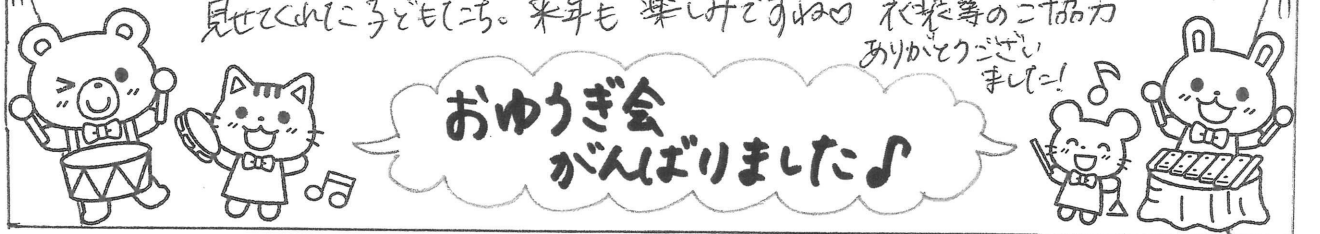 見せてくれた子どもたち。来年も楽しみですね♡ 衣装等のご協力
ありがとうござい
ました!
おゆうぎ会
がんばりました♪